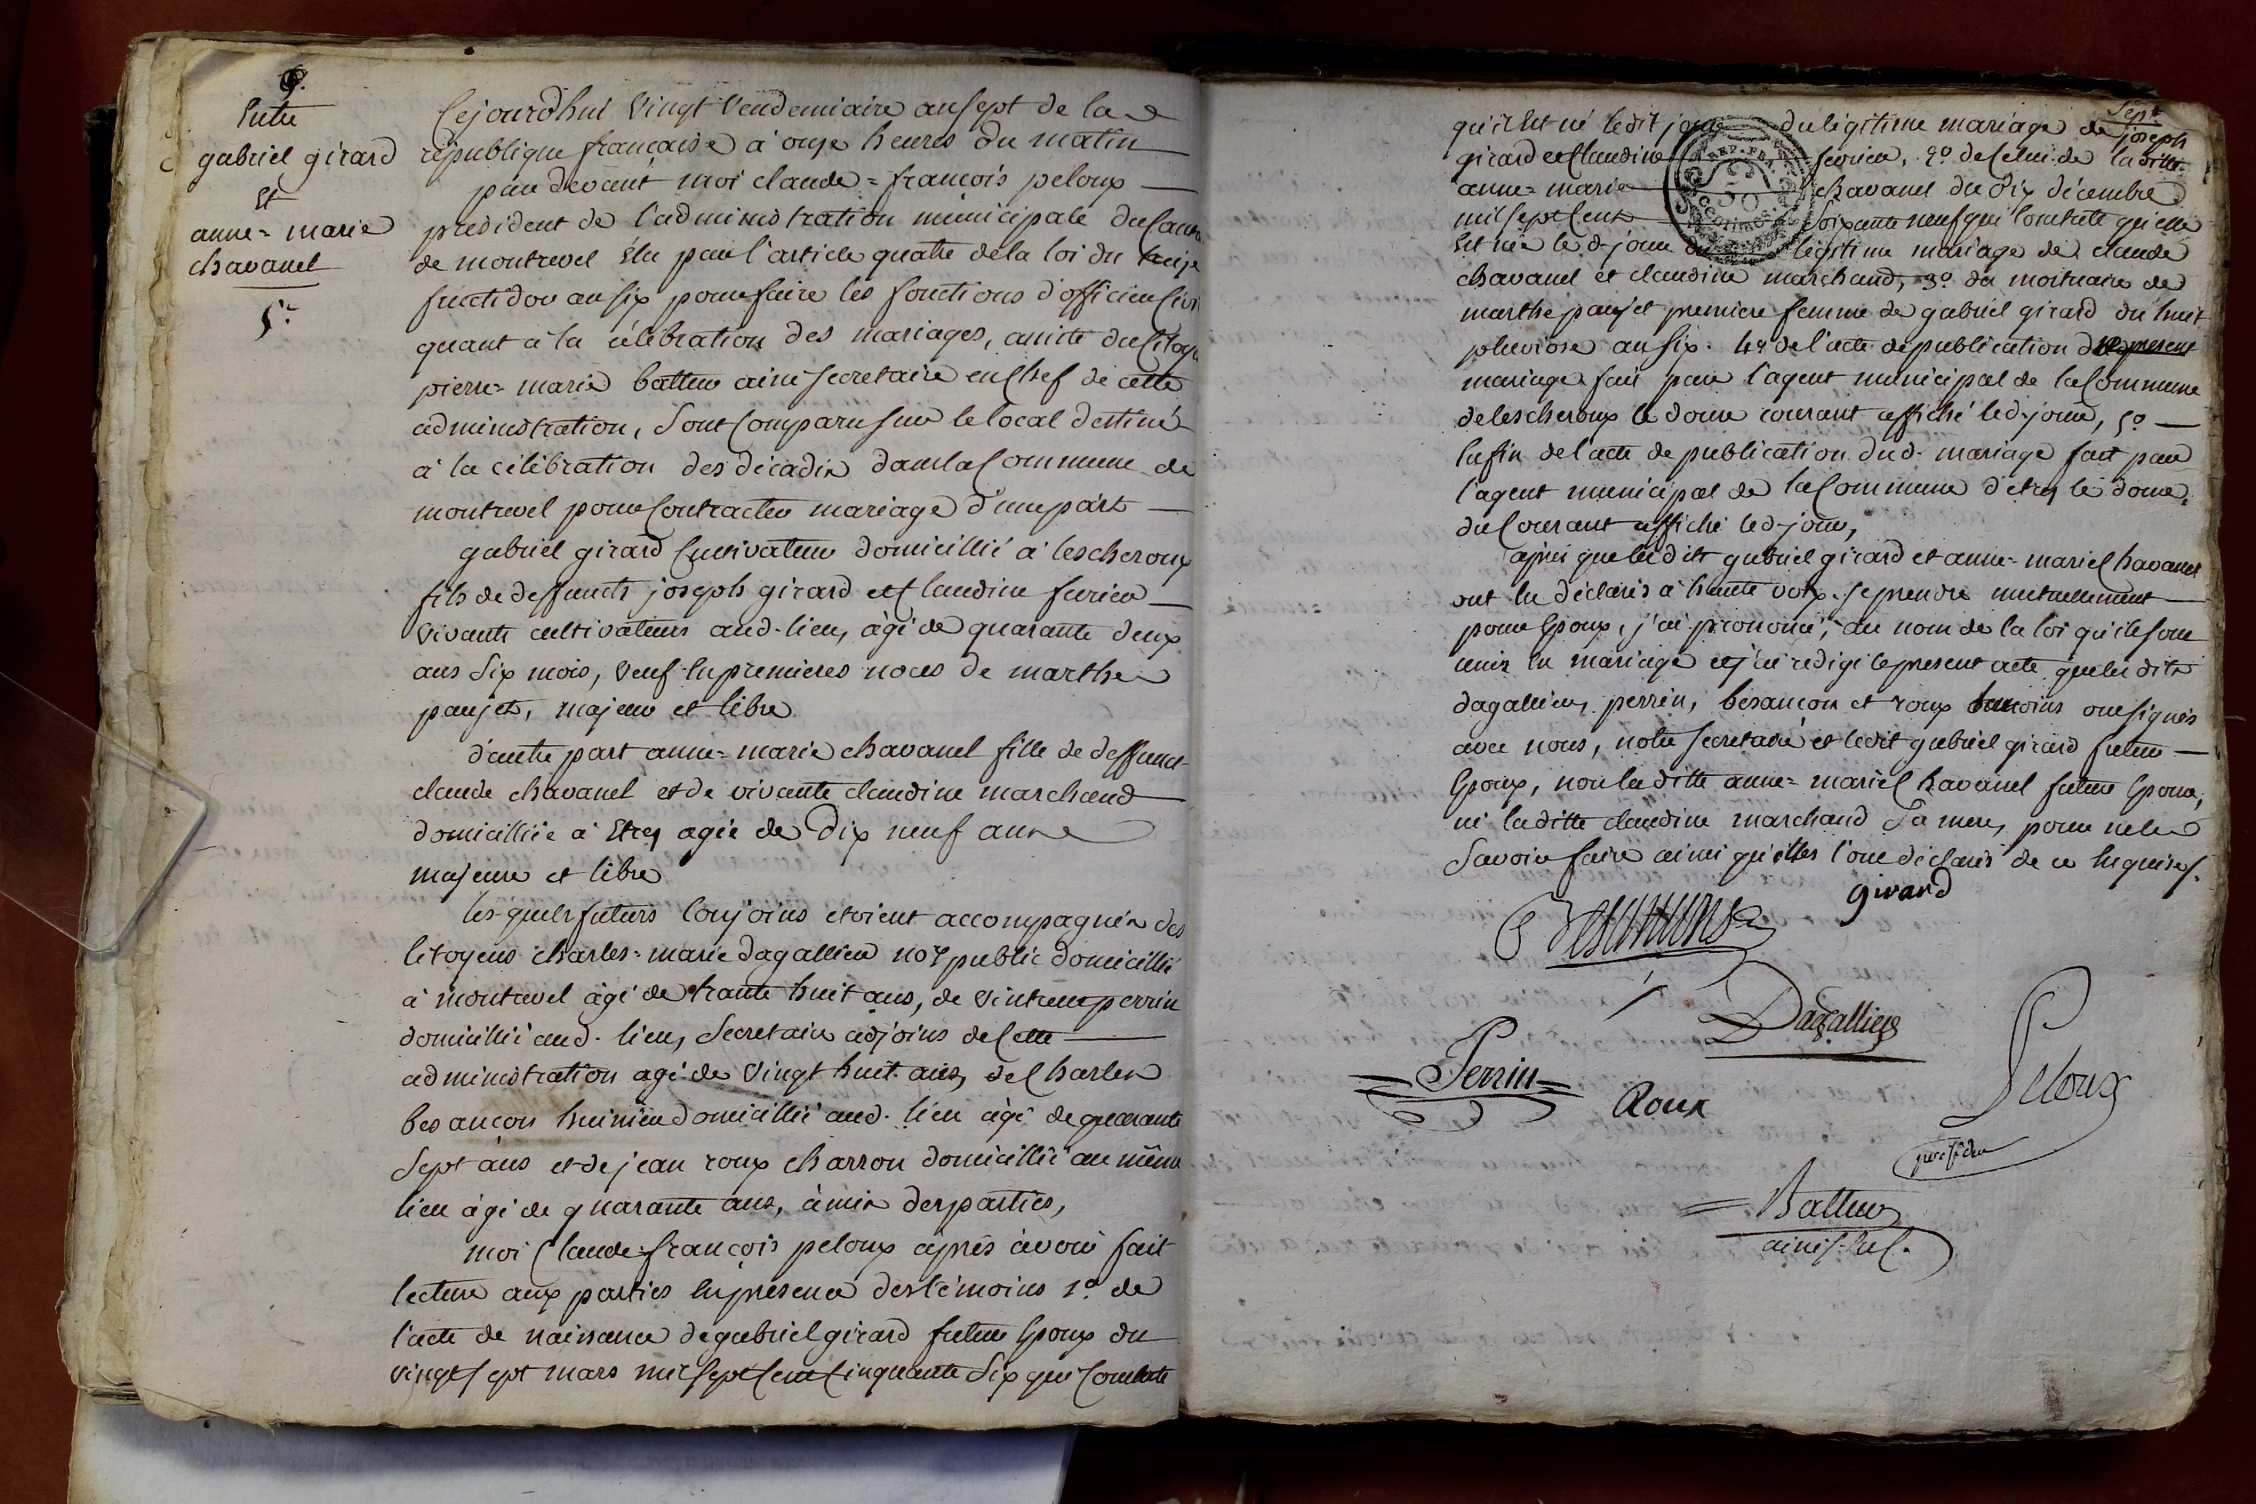 Entre
gabriel girard
Et
anne=marie
chavanel
5.e
Cejourd'hui vingt Vendemiaire an sept de la
république française à onze heures du matin
par devant moi claude=françois peloux
président de l'administration municipale du Canton
de montrevel élu par l'article quatre de la loi du treize
fructidor an six pour faire les fonctions d'officier civil
quant à la célébration des mariages, assisté du Citoyen
pierre=marie battur ainé secretaire en Chef de cette
administration, sont Comparu sur le local destiné
à la célébration des décadis dans la Commune de
montrevel pour Contracter mariage d'une part
gabriel girard Cultivateur domicillié à lescheroux
fils de deffuncts joseph girard et Claudine
vivants cultivateurs aud. lieu, âgé de quarante deux
ans six mois, veuf En premieres noces de marthe
paujet, majeur et libre
d'autre part anne=marie chavanel fille de deffunct
claude chavanel et de vivante claudine marchand
domicilliée à Etrez agée de Dix neuf ans
majeure et libre
les-quels futurs Conjoins etoient accompagnés des
Citoyens charles=marie dagallier not. public domicillié
à montrevel âgé de trante huit ans, de vincent perrin
domicillié aud. lieu, Secretaire adjoins de Cette
administration agé de vingt huit ans, de Charles
besançon huissier domicillié aud. lieu âgé de quarante
Sept ans et de jean roux charron domicillié au même
lieu âgé de quarante ans, amis des parties,
moi Claude=françois peloux après avoir fait
lecture aux parties En présence des témoins 1.o de
l'acte de naissance de gabriel girard futur Epoux du
vingt sept mars mil sept Cent Cinquante Six qui Constate
Sept
qu'il Est né ledit jour du légitime mariage de joseph
girard et Claudine 2.o de Celui de laditte
anne=marie chavanel du dix décembre
mil sept Cent Soixante neuf qui Constate qu'elle
Est née le d. jour du légitime mariage de claude
chavanel et claudine marchand, 3.o du mortuaire de
marthe paujet premiere femme de gabriel girard du huit
pluviose an six. 4.o de l'acte de publication de present
mariage fait par l'agent municipal de la Commune
de lescheroux le douze courant affiché led. jour, 5.o
Enfin de l'acte de publication dud. mariage fait par
l'agent municipal de la Commune d'etrez le douze
du Courant affiché led. jour,
après que lesdits gabriel girard et anne=marie Chavanel
ont Eu déclarés à haute voix se prendre mutuellement
pour Epoux, j'ai prononcé, au nom de la loi qu'ils sont
unis En mariage et j'ai redigé le present acte que lesdits
dagallier, perrin, besançon et roux temoins ont signés
avec nous, notre secretaire et ledit gabriel girard futur
Epoux, non laditte anne=marie Chavanel future Epouse,
ni laditte claudine marchand sa mere, pour ne le
Savoir faire ainsi qu'elles l'ont déclarés de ce Enquises.
girard
Dagallier
Perrin
Roux
Peloux
président
Battur
ainé